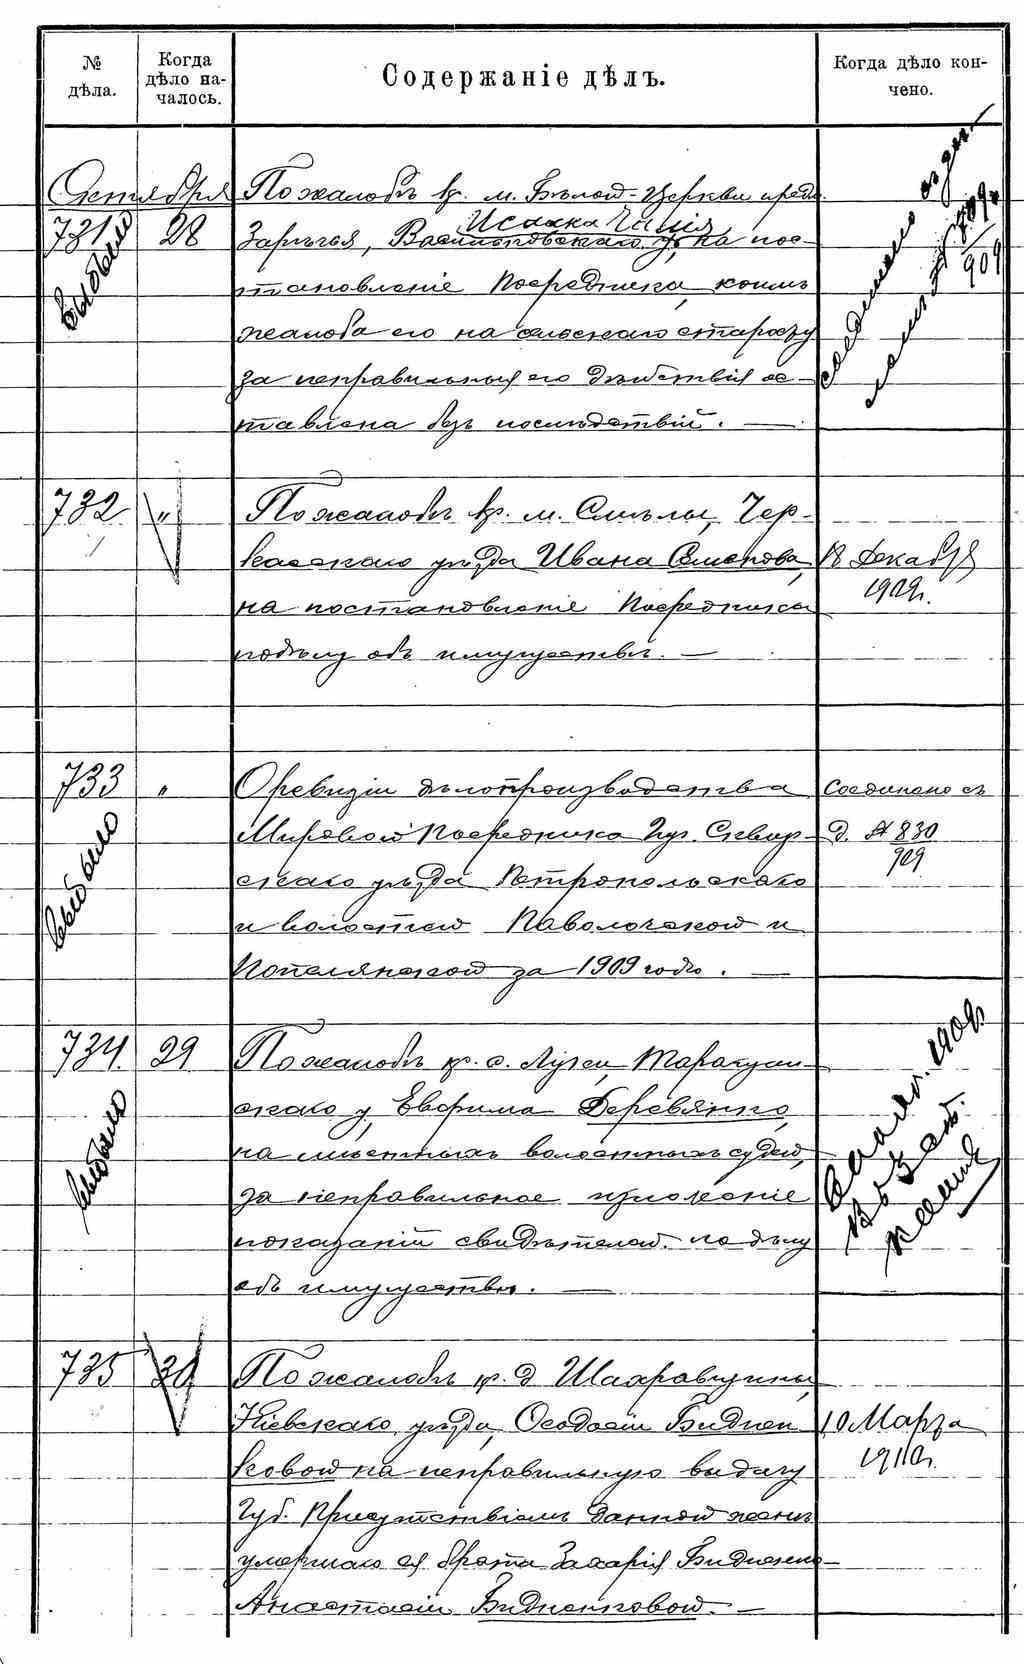 № дѣла.
Когда дѣло на-
чалось.
Содержаніе дѣлъ.
Когда дѣло кон-
чено.
Октября
731
28
Выбыло
По жалобѣ кр. м. Бѣлой-Церкви предм.
Зарѣчья, Васильковскаго у. Исаака на пос-
тановленіе Посредника, коимъ
жалоба его на сельскаго старосту
за неправильныя его дѣйствія ос-
тавлена безъ послѣдствій. —
соединено
909
732
"
По жалобѣ кр. м. Смѣлы, Чер-
касскаго уѣзда Ивана Семенова,
на постановленіе Посредника
по дѣлу объ имуществѣ. —
18 Декабря
1909г.
733
"
Выбыло
О ревизіи дѣлопроизводства
Мироваго Посредника Сквир-
скаго уѣзда
и волостей Паволочской и
за 1909 годъ. —
Соединено съ
д. № 830
909
734.
29
Выбыло
По жалобѣ кр. с. Таращан-
скаго у. Евфима Деревянко,
на мѣстныхъ волостныхъ судей,
за неправильное изложеніе
показаній свидѣтелей по дѣлу
объ имуществѣ. —
1909г.
735
30
По жалобѣ кр. д. Шахравщины,
Кіевскаго уѣзда, Феодосіи Бидиен
ковой на неправильную выдачу
Губ. Присутствіемъ данной женѣ
умершаго ея брата Захарія Бидненко—
Анастасіи Бидненковой. —
10 Марта
1910г.